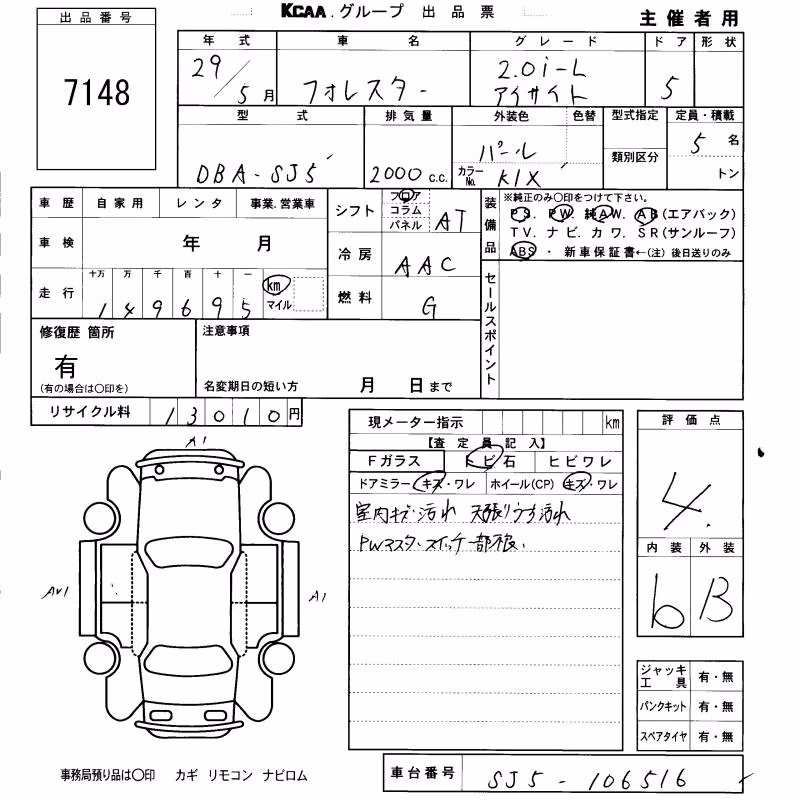 出品番号
7148
KCAA.グループ 出品票
主催者用
年式 車名 グレード ドア 形状
29/5月 フォレスター 2.0i-L アイサイト 5
型式 排気量 外装色 色替 型式指定 定員・積載
DBA-SJ5 2000c.c. パール 類別区分 5名
カラーNo. K1X トン
車歴 自家用 レンタ 事業.営業車
車検 年 月
走行 十万 万 千 百 十 一
149695 km マイル
シフト フロア コラム パネル AT
冷房 AAC
燃料 G
装備品 ※純正のみ○印をつけて下さい。
PS. PW. 純AW. AB(エアバック)
TV. ナビ. カワ. SR(サンルーフ)
ABS ・ 新車保証書←(注)後日送りのみ
セールスポイント
修復歴 箇所
有
(有の場合は○印を)
注意事項
名変期日の短い方 月 日まで
リサイクル料 13010円
現メーター指示 km
【査定員記入】
Fガラス トビ石 ヒビワレ
ドアミラー キズ・ワレ ホイール(CP) キズ・ワレ
室内キズ・汚れ 天張りウチ汚れ
PWマスタースイッチ一部不良.
評価点
4.
内装 外装
b B
A1
AW1
A1
ジャッキ工具 有・無
パンクキット 有・無
スペアタイヤ 有・無
事務局預り品は○印 カギ リモコン ナビロム
車台番号 SJ5-106516